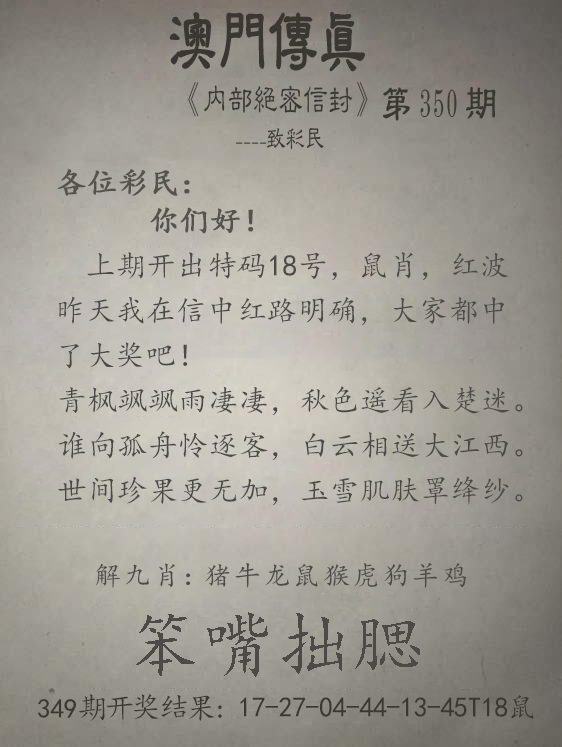 澳門傳眞
《内部絕密信封》第350期
----致彩民
各位彩民：
你们好！
上期开出特码18号，鼠肖，红波
昨天我在信中红路明确，大家都中
了大奖吧！
青枫飒飒雨凄凄，秋色遥看入楚迷。
谁向孤舟怜逐客，白云相送大江西。
世间珍果更无加，玉雪肌肤罩绛纱。
解九肖：猪牛龙鼠猴虎狗羊鸡
笨嘴拙腮
349期开奖结果：17-27-04-44-13-45T18鼠